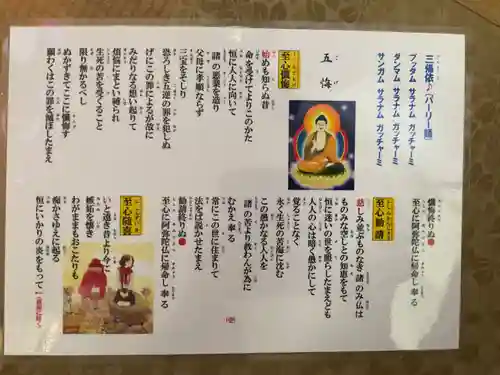 三帰依♪(パーリー語)
ブッダム サラナム ガッチャーミ
ダンマム サラナム ガッチャーミ
サンガム サラナム ガッチャーミ
五悔
至心懺悔
始めも知らぬ昔
命を受けてよりこのかた
恒に人人に向いて
諸の悪業を造り
父母に孝順ならず
三宝をそしり
恐ろしき五逆の罪を犯しぬ
げにこの罪によるが故に
みだりなる想い起りて
煩悩にまとい縛られ
生死の苦を受くること
限り無かるべし
ぬかずきてここに懺悔す
願わくはこの罪を滅ぼしたまえ
懺悔終りぬ
至心に阿弥陀仏に帰命し奉る
至心勧請
慈しみ並ぶものなき諸のみ仏は
ものみな空しとの知恵をもて
恒に迷いの世を照らしたまえども
人人の心は暗く愚かにして
覚ることなく
永く生死の苦海に沈む
この愚かなる人人を
諸の苦より救わんが為に
むかえ奉る
常にこの世に住まりて
法をば説かせたまえ
勧請終りぬ
至心に阿弥陀仏に帰命し奉る
至心随喜
いと遠き昔より今に
嫉妬を懐き
わがままもおこたりも
痴かさゆえに起る
恒にいかりの火をもって